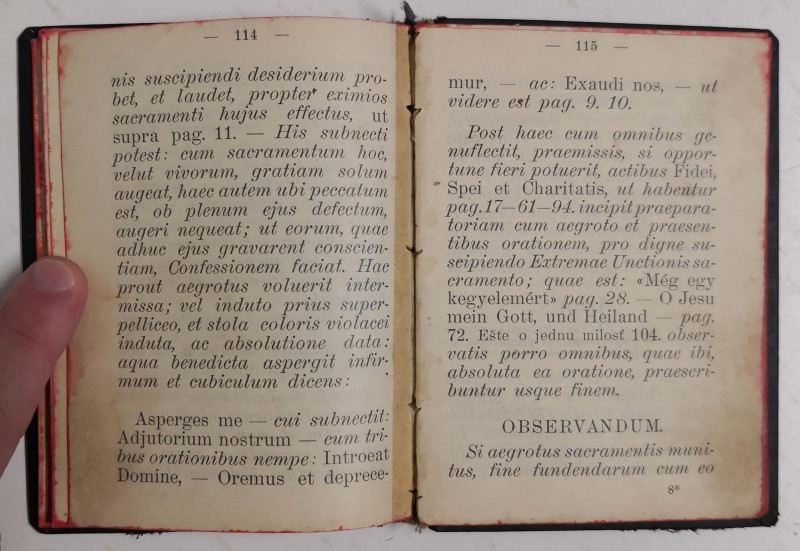 — 114 —
nis suscipiendi desiderium pro-
bet, et laudet, propter eximios
sacramenti hujus effectus, ut
supra pag. 11. — His subnecti
potest: cum sacramentum hoc,
velut vivorum, gratiam solum
augeat, haec autem ubi peccatum
est, ob plenum ejus defectum,
augeri nequeat; ut eorum, quae
adhuc ejus gravarent conscien-
tiam, Confessionem faciat. Hac
prout aegrotus voluerit inter-
missa; vel induto prius super-
pelliceo, et stola coloris violacei
induta, ac absolutione data:
aqua benedicta aspergit infir-
mum et cubiculum dicens:
Asperges me — cui subnectit:
Adjutorium nostrum — cum tri-
bus orationibus nempe: Introeat
Domine, — Oremus et deprece-
— 115 —
mur, — ac: Exaudi nos, — ut
videre est pag. 9. 10.
Post haec cum omnibus ge-
nuflectit, praemissis, si oppor-
tune fieri potuerit, actibus Fidei,
Spei et Charitatis, ut habentur
pag. 17—61—94. incipit praepara-
toriam cum aegroto et praesen-
tibus orationem, pro digne su-
scipiendo Extremae Unctionis sa-
cramento; quae est: «Még egy
kegyelemért» pag. 28. — O Jesu
mein Gott, und Heiland — pag.
72. Ešte o jednu milosť 104. obser-
vatis porro omnibus, quae ibi,
absoluta ea oratione, praescri-
buntur usque finem.
OBSERVANDUM.
Si aegrotus sacramentis muni-
tus, fine fundendarum cum eo
8*